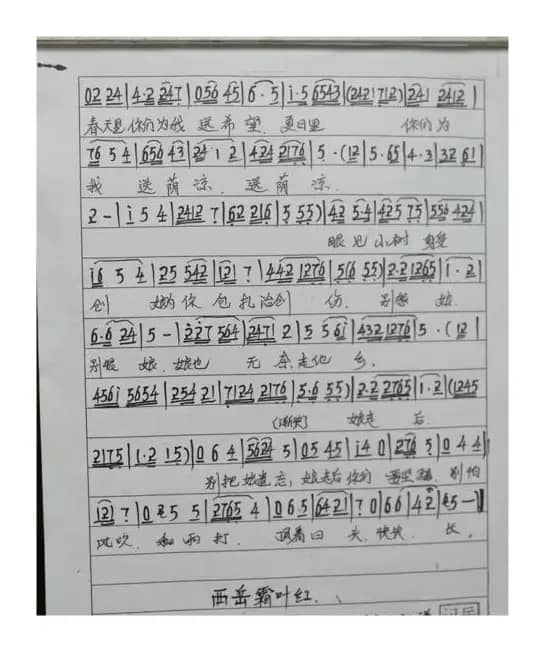 02 24|4·2 247|056 45|6·5|i·5 6543|(2421 712)|241 2412|
春天里你们为我 送希望, 夏日里 你们为
76 5 4|656 43|24 1 2|424 2176|5·(12|5·65|4·3|32 61|
我 送荫凉, 送荫凉.
2-|i 5 4|2412 7|62 216|5 55)|42 54|425 75|556 424|
眼见小树 身受
i6 5 4|25 542|121 7|442 1276|5(6 55)|2·2 1265|1·2|
创 娘为你包扎治创 伤. 别恨 娘.
6·6 24|5-|227 564|247 2|5 5 6i|432 1276|5·(12|
别恨 娘. 娘也 无 奈走他 乡.
456i 5654|254 21|7124 2176|5·6 55)|2·2 2765|1·2|(1245
娘走 后
2175|(1·2 15)|0 6 4|5624 5|05 45|i4 0|276 5|0 4 4|
别把娘遗忘, 娘走后你们 要坚强. 别怕
121 7|02 5 5|2765 4|0 6 5|64 21|7 0|66|4 2|45-|
风吹. 和雨打. 快快 长.
西岳霜叶红.